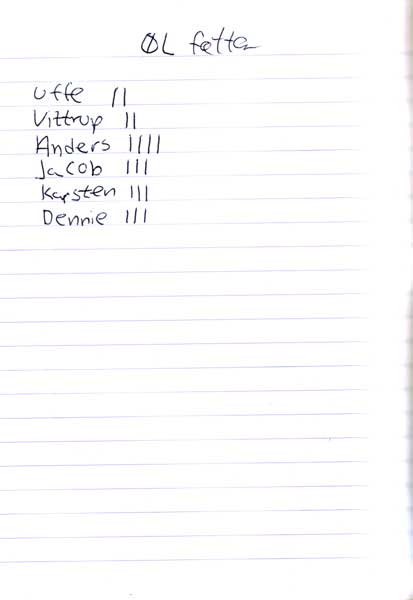 ØL fætter
Uffe ||
Vittrup ||
Anders ||||
Jacob |||
Karsten |||
Dennie |||